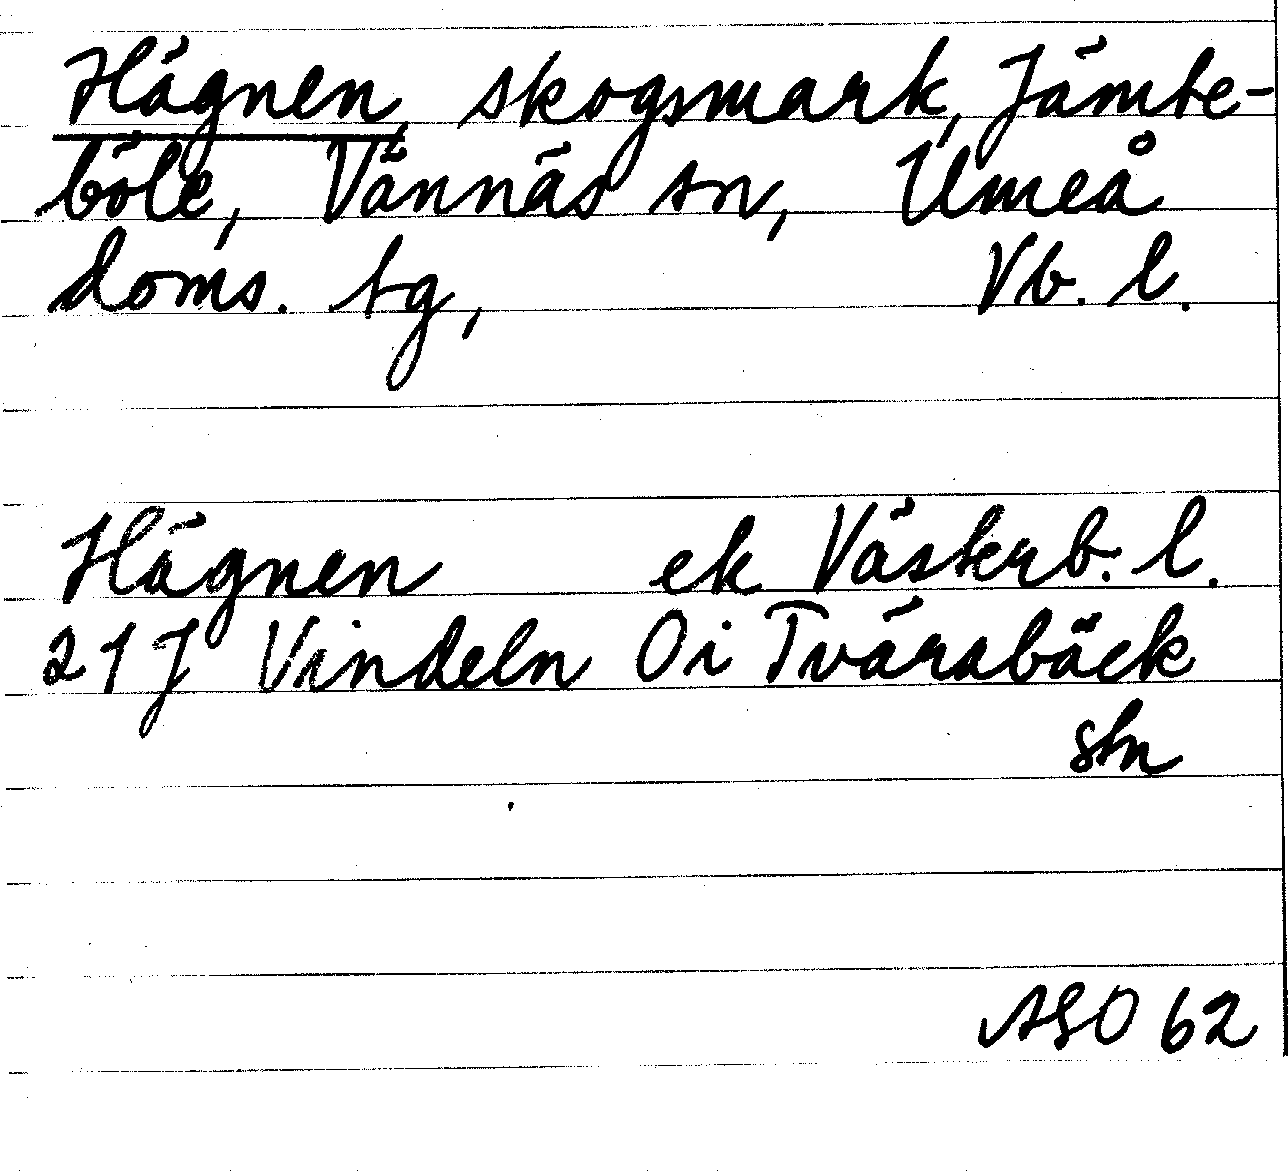 Hägnen, skogsmark, Jämte-
böle, Vännäs sn, Umeå
doms. tg, Vb. l.
Hägnen ek Västerb. l.
21J Vindeln Oi Tväråbäck
stn
ASO 62